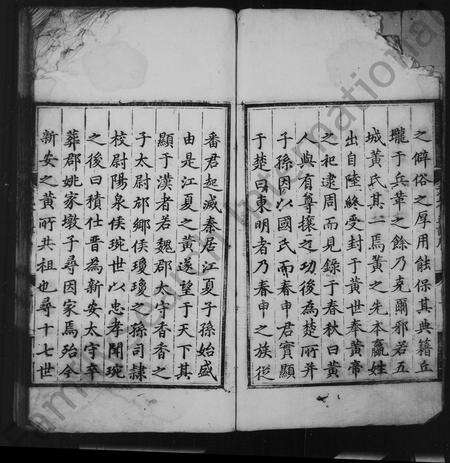 之僻俗之厚用能保其典籍丘
壠于兵革之餘乃爽爾邪若五
城黃氏其一焉黃之先本嬴姓
出自陸終受封于黃世奉黃帝
之祀逮周而見錄于春秋曰黃
人與有尊攘之功後為楚所并
子孫因以國氏而春申君實顯
于楚曰東明者乃春申之族從
番君起滅秦居江夏子孫始盛
由是江夏之黃遂望于天下其
顯于漢者若魏郡太守香香之
子太尉邟鄉侯瓊瓊之孫司隷
校尉陽泉侯琬世以忠孝聞琬
之後曰積仕晉為新安太守卒
葬郡姚家墩子尋因家焉殆今
新安之黃所共祖也尋十七世